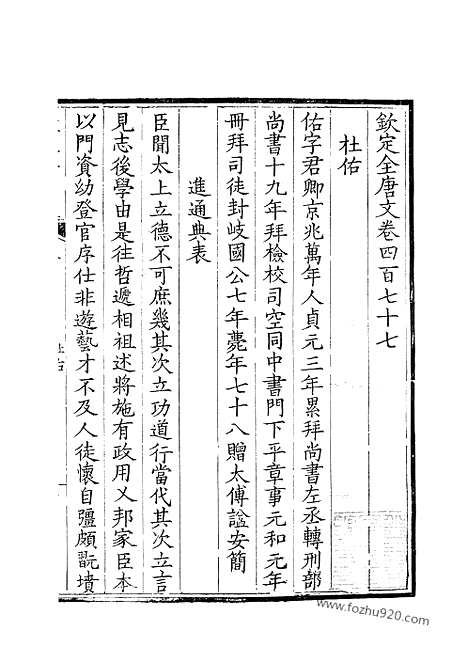 欽定全唐文卷四百七十七
杜佑
佑字君卿京兆萬年人貞元三年累拜尚書左丞轉刑部
尚書十九年拜檢校司空同中書門下平章事元和元年
冊拜司徒封岐國公七年薨年七十八贈太傅諡安簡
進通典表
臣聞太上立德不可庶幾其次立功道行當代其次立言
見志後學由是往哲遞相祖述將施有政用乂邦家臣本
以門資幼登官序仕非遊藝才不及人徒懷自彊頗翫墳
杜佑
www.fozhu920.com